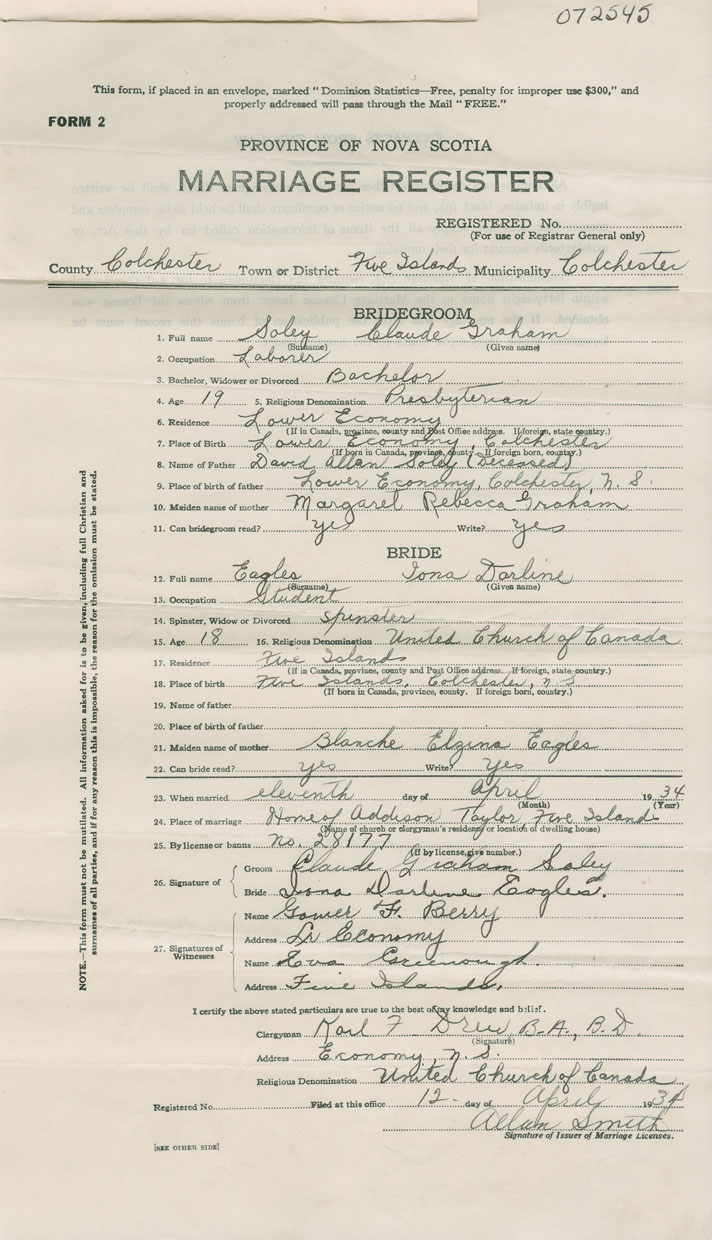 072545
This form, if placed in an envelope, marked "Dominion Statistics—Free, penalty for improper use $300," and
properly addressed will pass through the Mail "FREE."
FORM 2
PROVINCE OF NOVA SCOTIA
MARRIAGE REGISTER
REGISTERED No.
(For use of Registrar General only)
County Colchester Town or District Five Islands Municipality Colchester
BRIDEGROOM
1. Full name Soley Claude Graham
(Surname) (Given name)
2. Occupation Laborer
3. Bachelor, Widower or Divorced Bachelor
4. Age 19 5. Religious Denomination Presbyterian
6. Residence Lower Economy
(If in Canada, province, county and Post Office address. If foreign, state country.)
7. Place of Birth Lower Economy, Colchester
(If born in Canada, province, county. If foreign born, country.)
8. Name of Father David Allan Soley (Deceased)
9. Place of birth of father Lower Economy, Colchester, N. S.
10. Maiden name of mother Margaret Rebecca Graham
11. Can bridegroom read? yes Write? yes
BRIDE
12. Full name Eagles Iona Darline
(Surname) (Given name)
13. Occupation Student
14. Spinster, Widow or Divorced spinster
15. Age 18 16. Religious Denomination United Church of Canada
17. Residence Five Islands
(If in Canada, province, county and Post Office address. If foreign, state country.)
18. Place of birth Five Islands, Colchester, N. S.
(If born in Canada, province, county. If foreign born, country.)
19. Name of father
20. Place of birth of father
21. Maiden name of mother Blanche Elzina Eagles
22. Can bride read? yes Write? yes
23. When married eleventh day of April 1934
(Month) (Year)
24. Place of marriage Home of Addison Taylor, Five Islands
(Name of church or clergyman's residence or location of dwelling house)
25. By license or banns no. 28177
(If by license, give number.)
26. Signature of Groom Claude Graham Soley
Bride Iona Darlene Eagles.
27. Signatures of Witnesses
Name Gomer F. Berry
Address Lr Economy
Name Eva Greenough.
Address Five Islands,
I certify the above stated particulars are true to the best of my knowledge and belief.
Clergyman Karl F Drew B.A., B.D.
(Signature)
Address Economy, N. S.
Religious Denomination United Church of Canada
Registered No. Filed at this office 12 day of April 1934
Allan Smith
Signature of Issuer of Marriage Licenses.
[SEE OTHER SIDE]
NOTE.—This form must not be mutilated. All information asked for is to be given, including full Christian and
surnames of all parties, and if for any reason this is impossible, the reason for the omission must be stated.